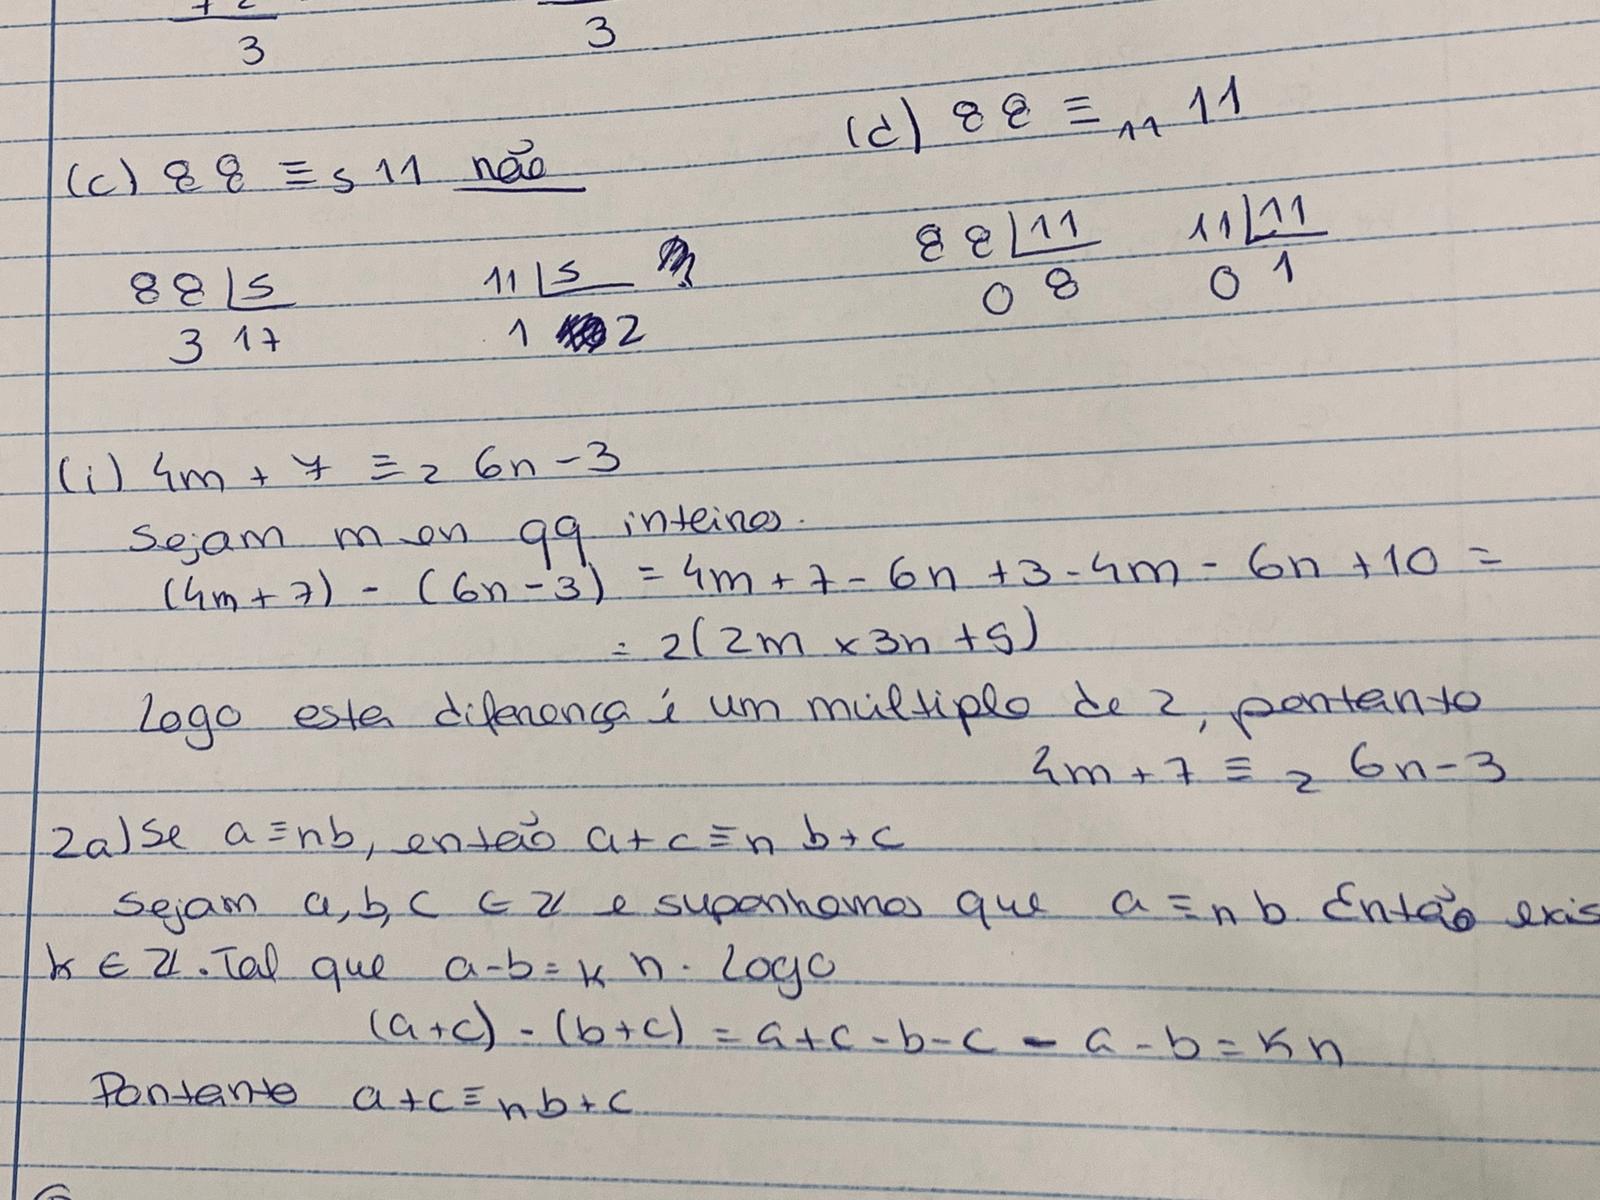 3 3
(c) 88 ≡₅ 11 não (d) 88 ≡₁₁ 11
88 | 5 11 | 5 88 | 11 11 | 11
3 17 1 2 0 8 0 1
(i) 4m + 7 ≡₂ 6n - 3
Sejam m e n qq inteiros.
(4m + 7) - (6n - 3) = 4m + 7 - 6n + 3 - 4m - 6n + 10 =
= 2(2m × 3n + 5)
Logo esta diferença é um múltiplo de 2, portanto
4m + 7 ≡₂ 6n - 3
2a) Se a ≡n b, então a + c ≡n b + c
Sejam a, b, c ∈ ℤ e suponhamos que a ≡n b. Então exis
k ∈ ℤ. Tal que a - b = k n. Logo
(a+c) - (b+c) = a + c - b - c - a - b = k n
Portanto a + c ≡n b + c